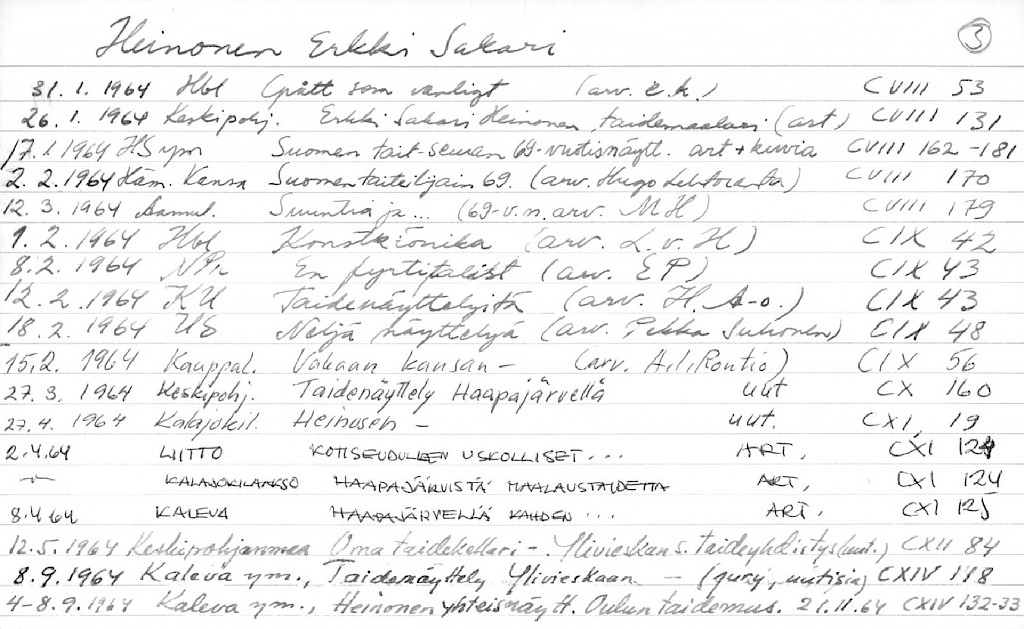 Heinonen Erkki Sakari 3
31. 1. 1964 Hbl Gått som vanligt (arv. e.k.) CVIII 53
26. 1. 1964 Keskipohj. Erkki Sakari Heinonen, taidemaalari (art) CVIII 131
17.1.1964 HS ym Suomen tait-seuran 69-vuotisnäytt. art + kuvia CVIII 162-181
2. 2. 1964 Häm. Kansa Suomen taiteilijain 69. (arv. Hugo Lehtoranta) CVIII 170
12. 3. 1964 Aamul. Suuntia ja... (69-v.n. arv. MH) CVIII 179
1. 2. 1964 Hbl Konstkrönika (arv. L. v. H) CIX 42
8. 2. 1964 NPr En fyrtitalist (arv. EP) CIX 43
12. 2. 1964 KU Taidenäyttelyitä (arv. H. A-o.) CIX 43
18. 2. 1964 US Neljä näyttelyä (arv. Pekka Suhonen) CIX 48
15.2. 1964 Kauppal. Vakaan kansan - (arv. A.I. Routio) CIX 56
27. 3. 1964 Keskipohj. Taidenäyttely Haapajärvellä uut CX 160
27. 4. 1964 Kalajokil. Heinosen - uut. CXI, 19
2.4.64 LIITTO KOTISEUDULLEEN USKOLLISET... ART. CXI 124
-"- KALAJOKILAAKSO HAAPAJÄRVISTÄ MAALAUSTAIDETTA ART. CXI 124
8.4.64 KALEVA HAAPAJÄRVELLÄ KAHDEN ... ART. CXI 125
12.5.1964 Keskipohjanmaa Oma taidekellari - Ylivieskan s. taideyhdistys (uut.) CXII 84
8.9.1964 Kaleva ym., Taidenäyttely Ylivieskaan - (jury, uutisia) CXIV 118
4-8.9.1964 Kaleva ym., Heinonen yhteisnäytt. Oulun taidemus. 21.11.64 CXIV 132-33